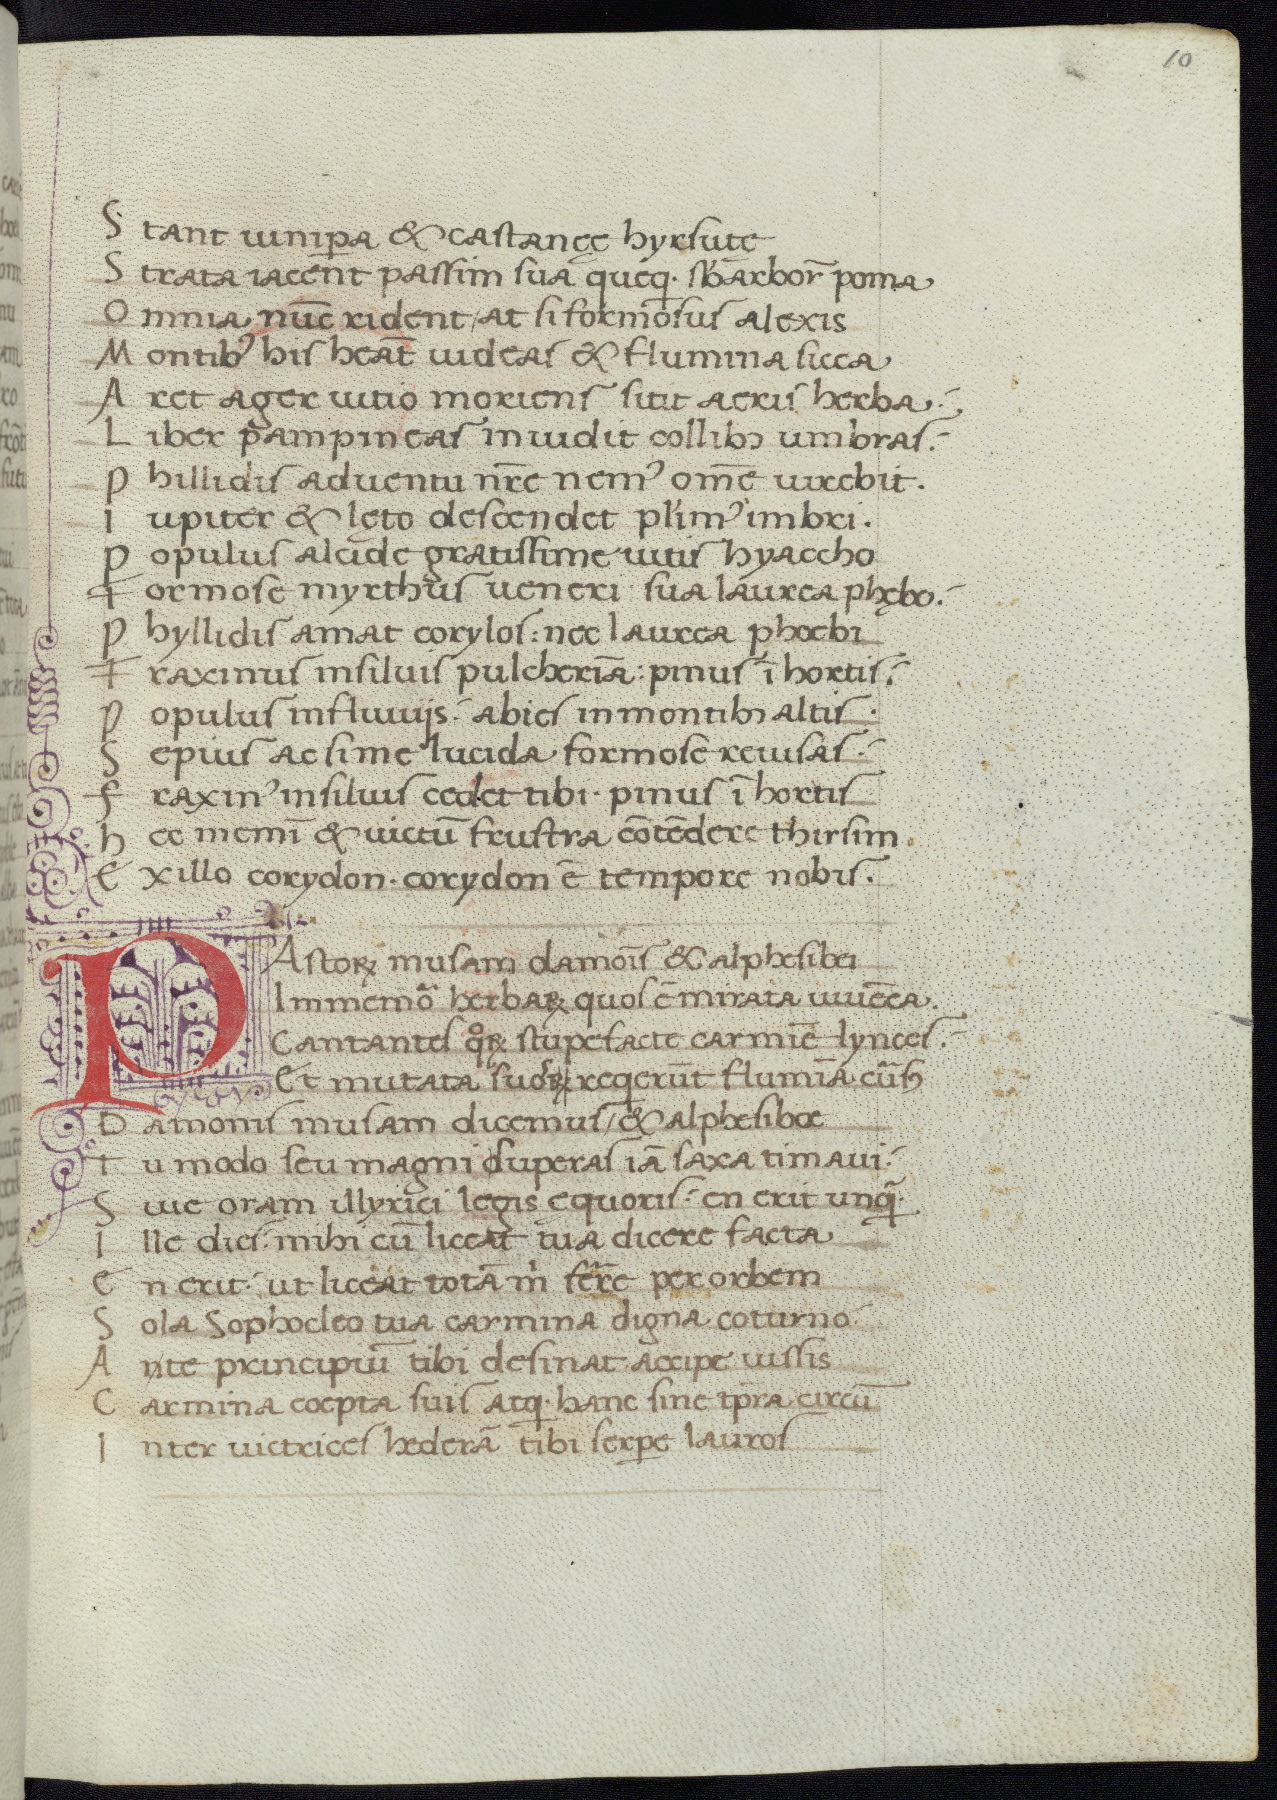 10
Stant iunip̲a & castaneę hyrsutę
Strata iacent passim sua queq· sb arbor̄ poma
Omnia nūc rident/ at si formosus alexis
Montibꝰ his heāt uideas & flumina sicca
Aret ager uitio moriens sitit aeris herba·
Liber pampineas inuidit collibꝫ umbras·
phillidis aduentu nr̄e nemꝰ om̄e uirebit.
Iupiter & lęto descendet plr̄imꝰ imbri.
populus alcide gratissime uitis hyaccho
Formose myrthus ueneri sua laurea phębo·
phyllidis amat corylos: nec laurea phoebi
Fraxinus in siluis pulcheriā: pinus ī hortis·
populus in fluuijs· abies in montibꝫ altis·
Sepius ac si me lucida formose reuisas·
fraxinꝰ in siluis cedet tibi· pinus ī hortis
hec memī & uictū frustra cōtēdere thirsim.
Ex illo corydon· corydon ē tempore nobis.
PAstoꝝ musam damoīs & alphesibei
Immemor̄ herbaꝝ quos ē mirata iuuēca.
Cantantes qͦꝝ stupefacte carmīe lynces·
Et mutata suoꝝ reqerūt flumīa cursꝫ
Damonis musam dicemus/ & alphesiboe
Tu modo seu magni superas iā saxa timaui·
Siue oram illyrici legis ęquoris· en erit unqᷓ·
Ille dies· mihi cū liceat tua dicere facta
En erit· ut liceat totā m̍ fer̄re per orbem
Sola Sophocleo tua carmina digna coturno·
Ante principiū tibi desinat· accipe uissis
Carmina coepta suis atq· hanc sine tp̄ra circū
Inter uictrices hederā tibi serp̲e lauros